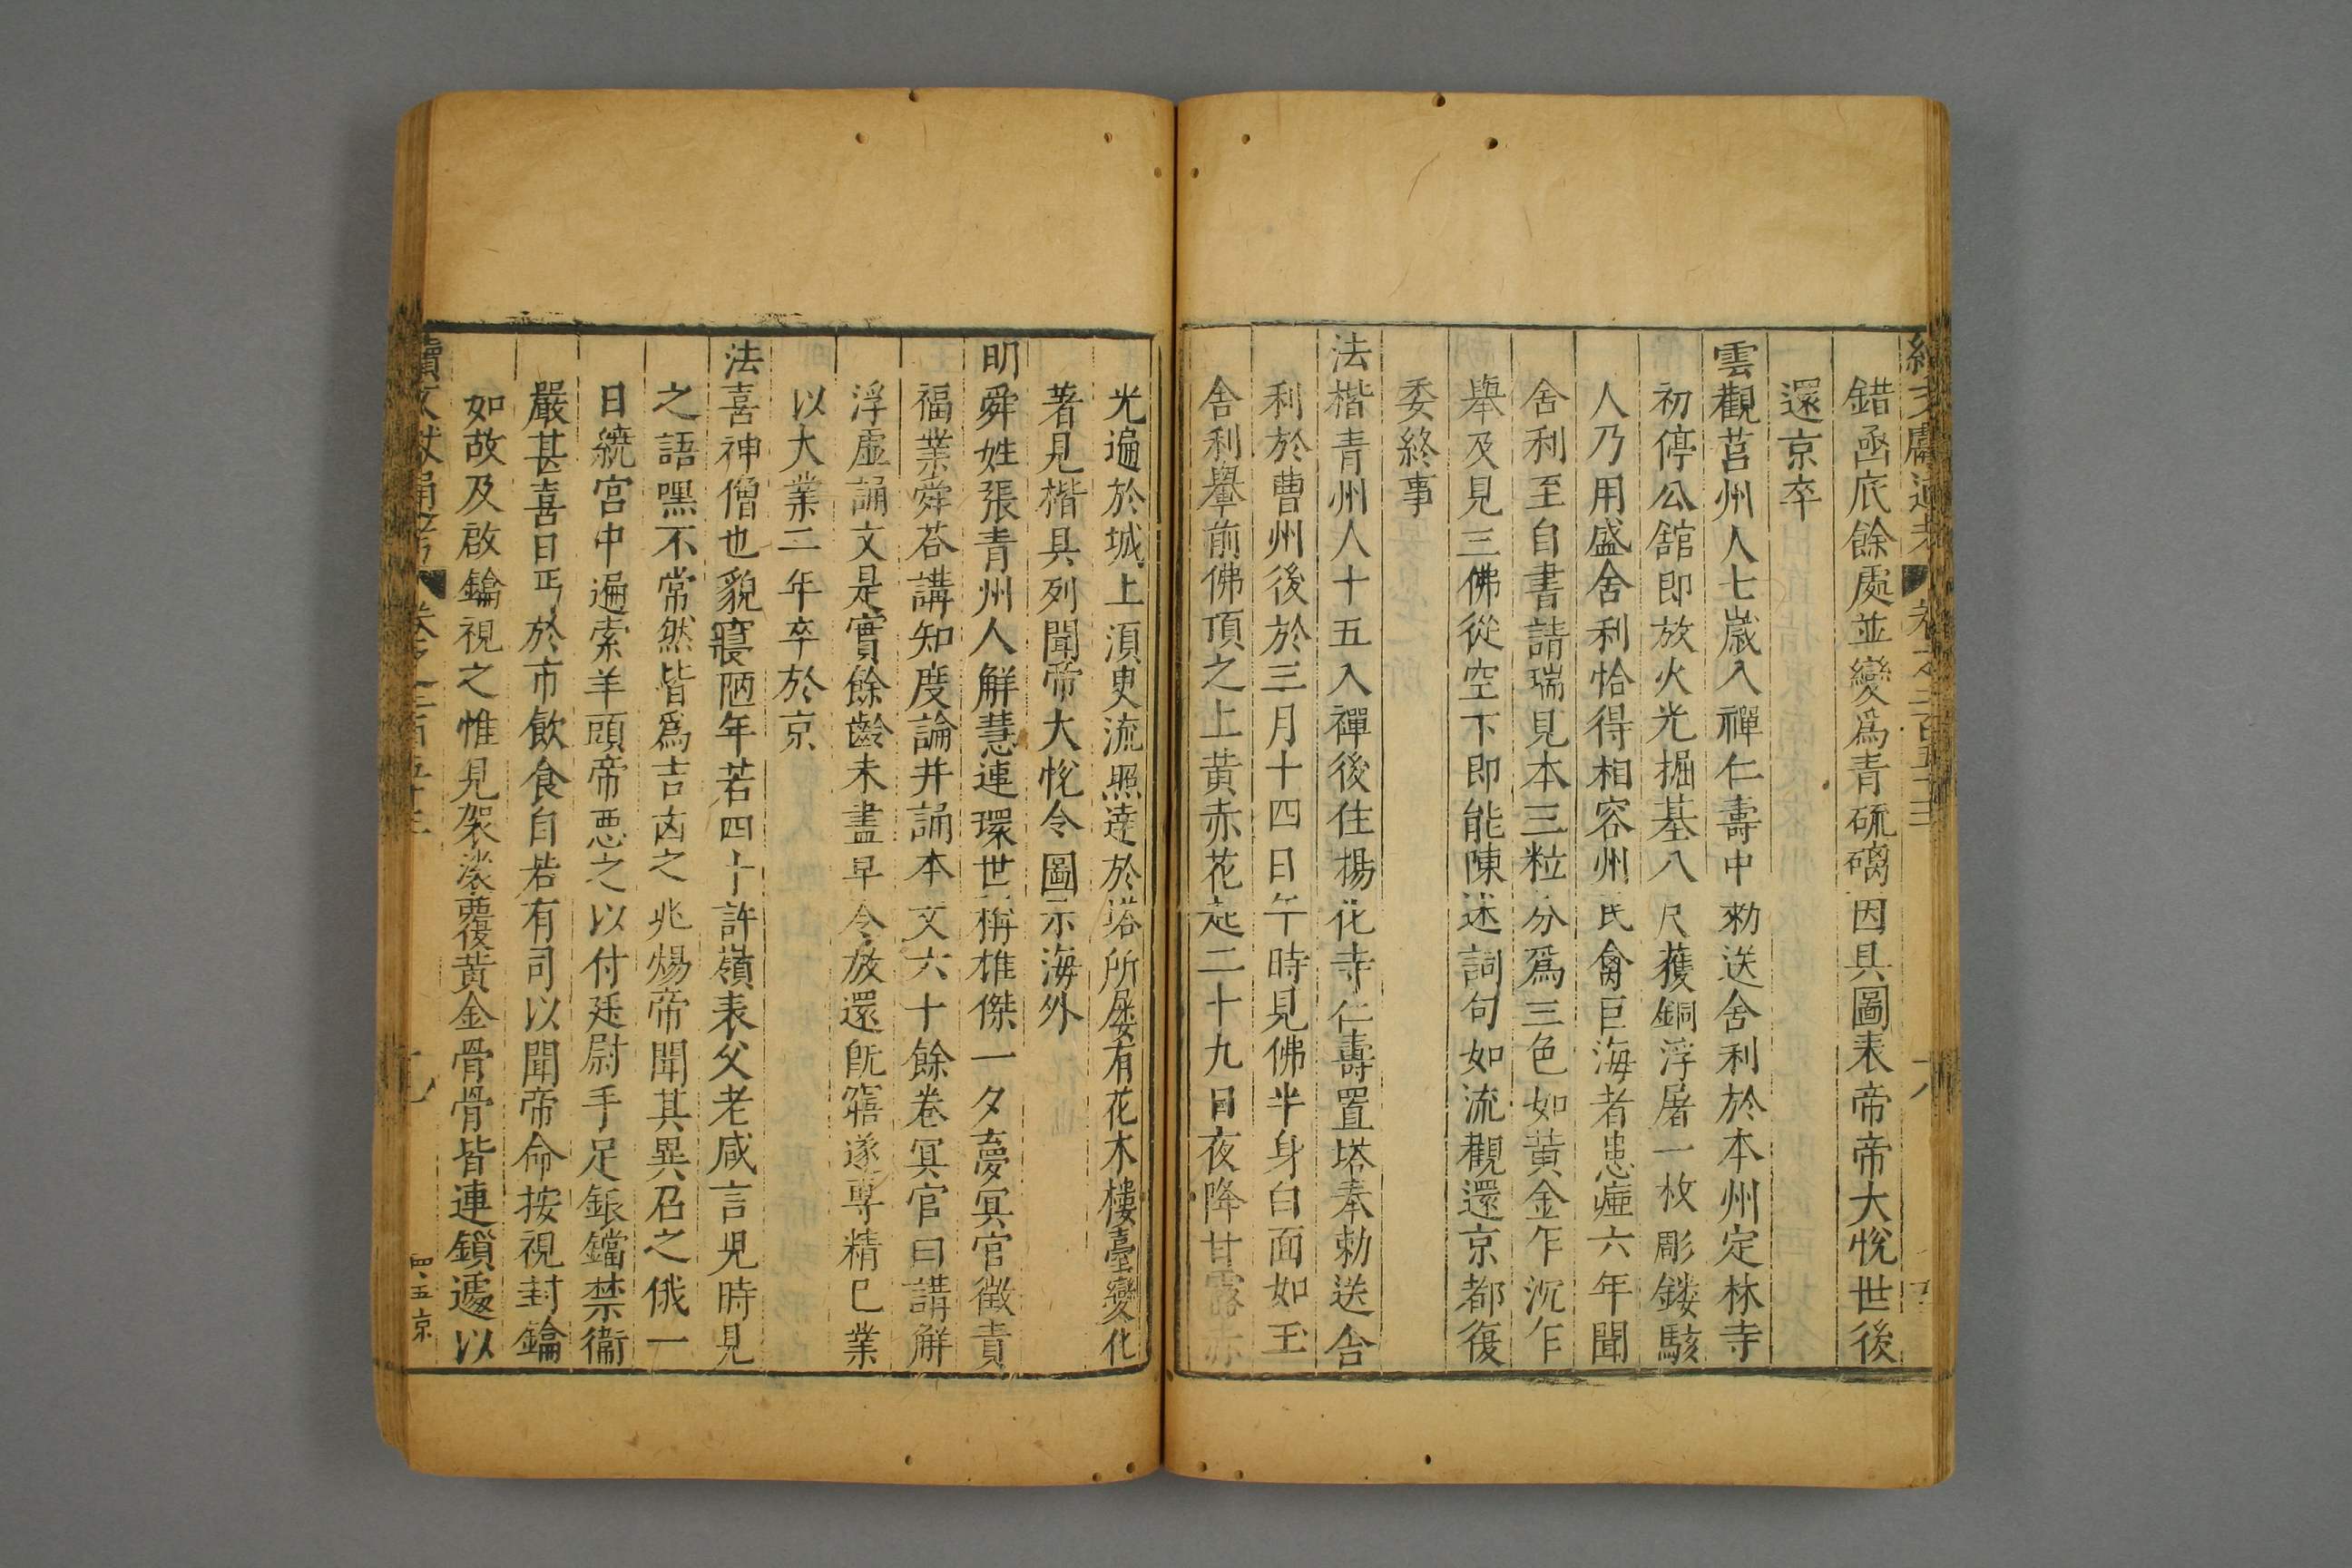 錯凾底餘處並變爲青硫璃因具圖表帝帝大悅世後
還京卒
雲觀莒州人七歲入禪仁壽中勅送舍利於本州定林寺
初停公舘即放火光掘基八尺獲銅浮屠一枚彫鏤駭
人乃用盛舍利恰得相容州民禽巨海者患瘂六年聞
舍利至自書請瑞見本三粒分爲三色如黃金乍沉乍
舉及見三佛從空下即能陳述詞句如流觀還京都復
委終事
法楷青州人十五入禪後住揚花寺仁壽置塔奉勅送舍
利於曹州後於三月十四日午時見佛半身白面如玉
舍利轝前佛頂之上黃赤花起二十九日夜降甘露赤
光遍於城上湏臾流照達於塔所屢有花木樓臺變化
著見楷具列聞帝大悅令圖示海外
明舜姓張青州人解慧連環世稱雄傑一夕夢冥官徵責
福業舜荅講知度論并誦本文六十餘卷冥官曰講解
浮虛誦文是實餘齡未盡早令放還旣寤遂專精巳業
以大業二年卒於京
法喜神僧也貌寢陋年若四十許嶺表父老咸言児時見
之語嘿不常然皆爲吉凶之兆煬帝聞其異召之俄一
日繞宮中遍索羊頭帝惡之以付廷尉手足鋃鐺禁衞
嚴甚喜日丐於市飲食自若有司以聞帝命按視封鑰
如故及啟鑰視之惟見袈裟覆黃金骨骨皆連鎖遽以
續文獻通考 卷之二百五十三
四五京